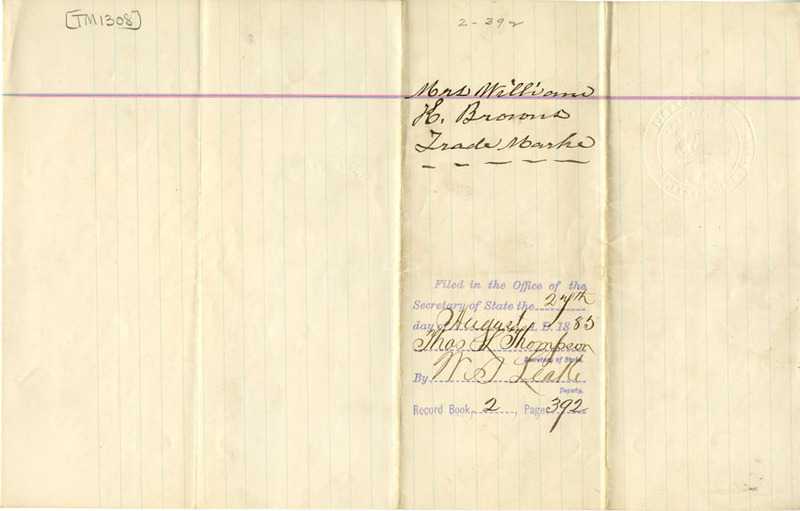 [TM1308]
2-392
Mrs William
H. Browns
Trade Marke
Filed in the Office of the
Secretary of State the 27th
day of August A. D. 1885
Thos L Thompson
Secretary of State.
By W. J. Leake
Deputy.
Record Book, 2, Page 392